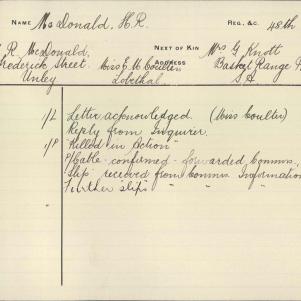 NAME McDonald, H.R. REG. &C. 48th
R. McDonald,
Frederick Street.
Unley
Miss E. M. Coulter
Lobethal
NEXT OF KIN
ADDRESS
Mrs G Knott
Basket Range
S.A
1/L Letter acknowledged. (Miss Coulter)
Reply from Inquirer.
1/P "Killed in Action"
P/Cable - confirmed - forwarded Commrs.,
Slip received from Commrs Information
Further slips " " "